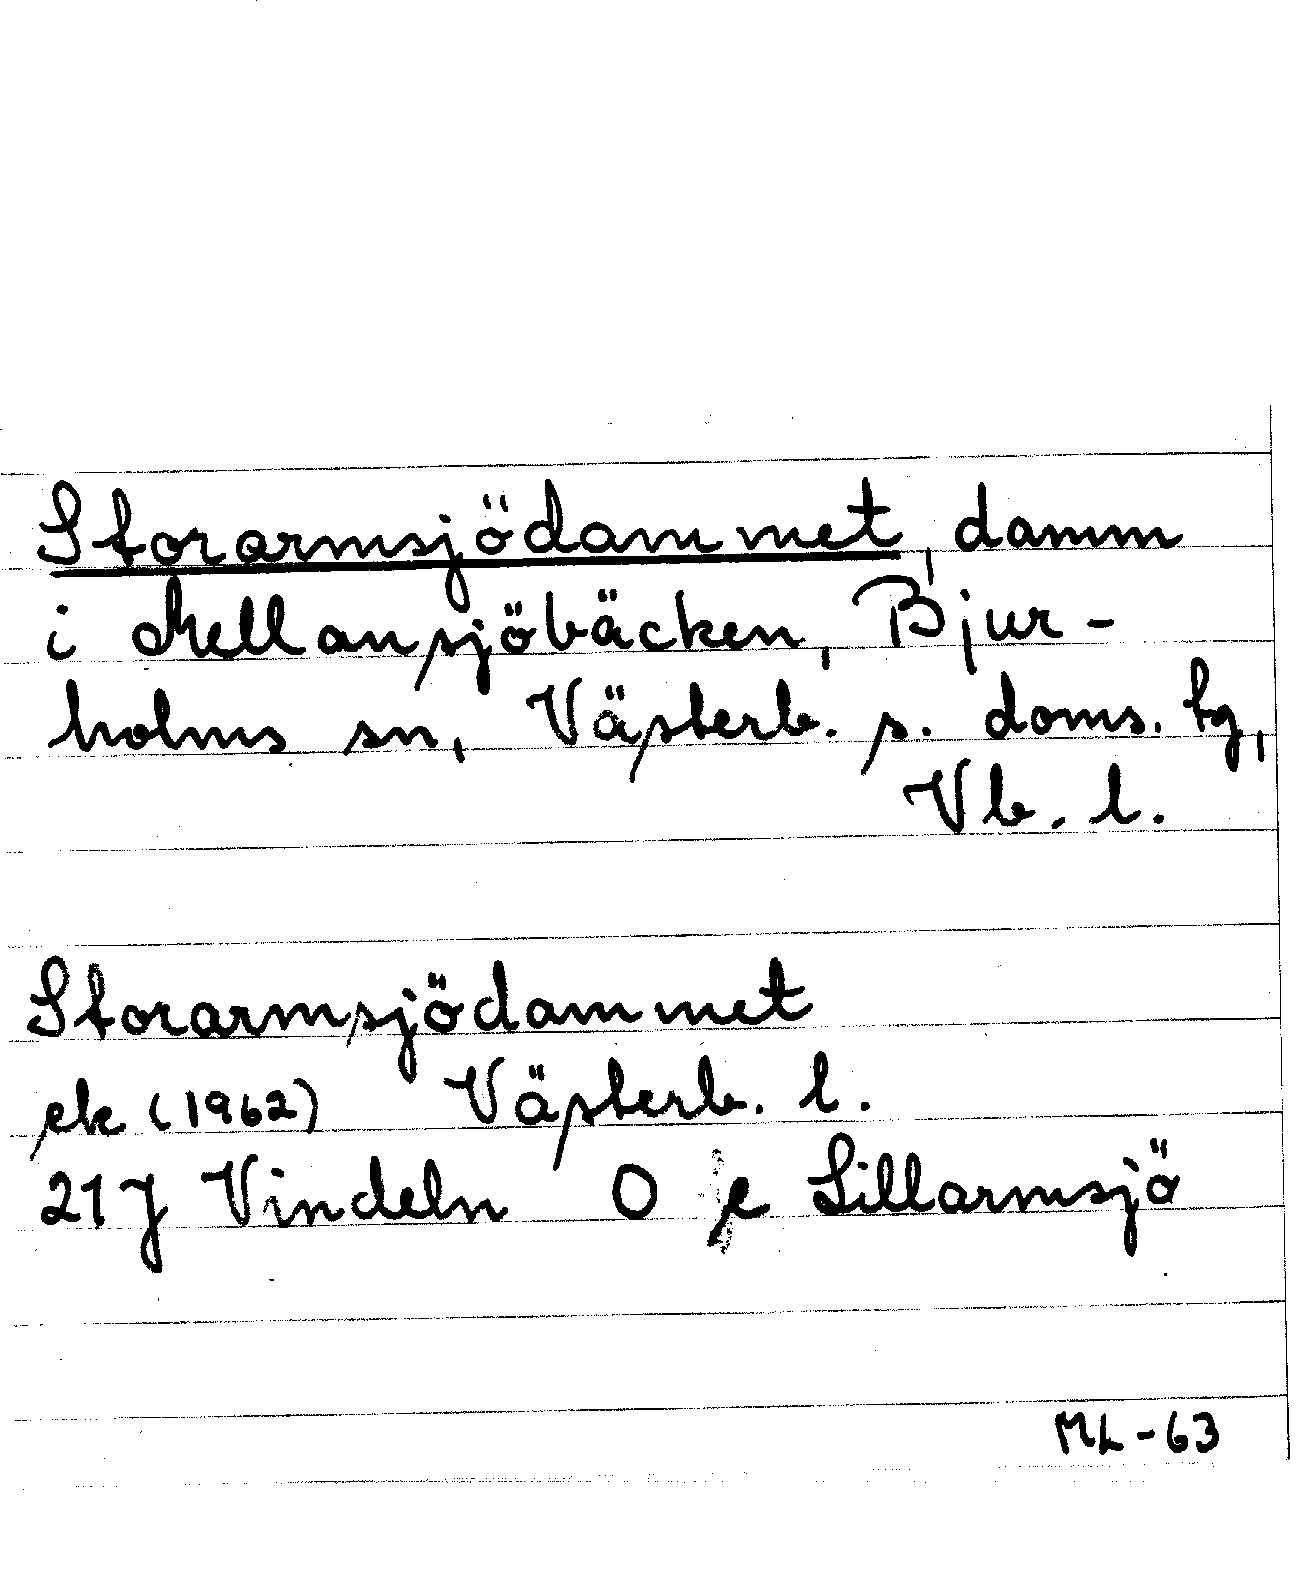 Storarmsjödammet, damm
i Mellansjöbäcken, Bjur-
holms sn, Västerb. s. doms. tg,
Vb. l.
Storarmsjödammet
ek (1962) Västerb. l.
21 J Vindeln O e Lillarmsjö
ML-63